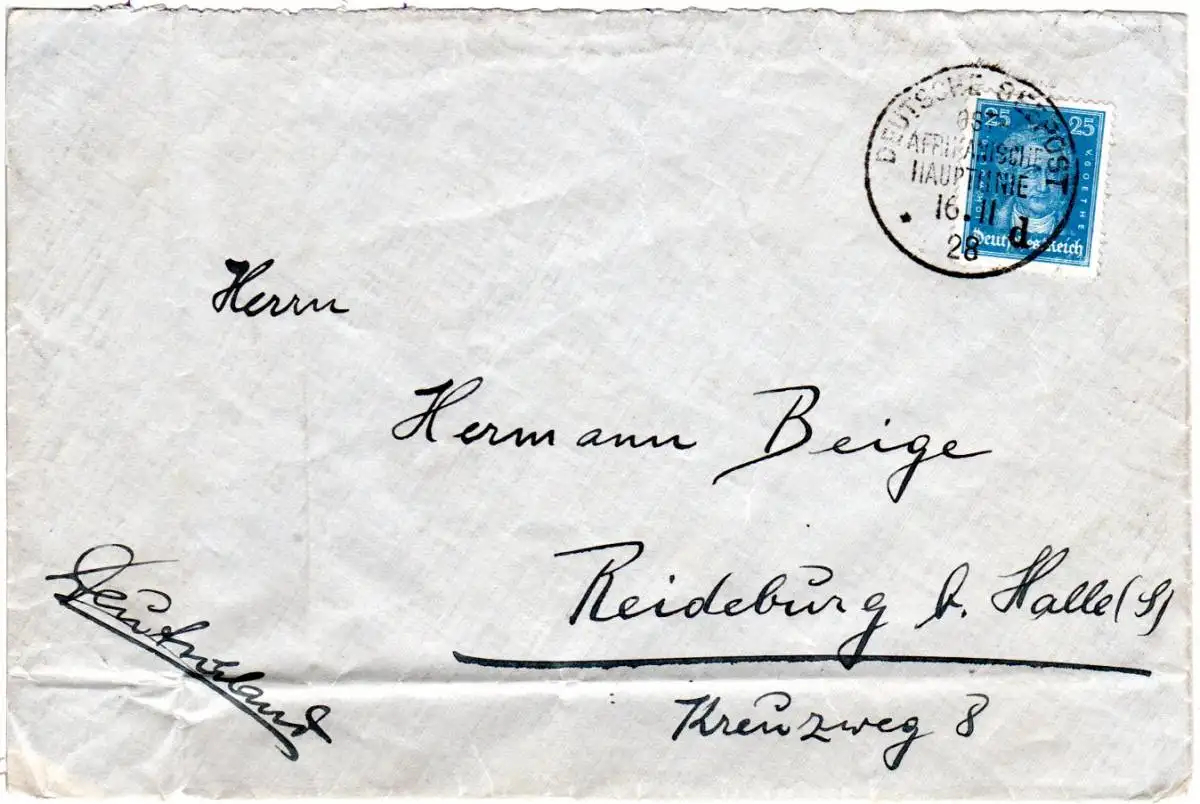 DEUTSCHE SEEPOST
OST-
AFRIKANISCHE
HAUPTLINIE
16.11
28
d
25 25
GOETHE
Deutsches Reich
Herrn
Hermann Beige
Reideburg b. Halle (S)
Kreuzweg 8
Deutschland